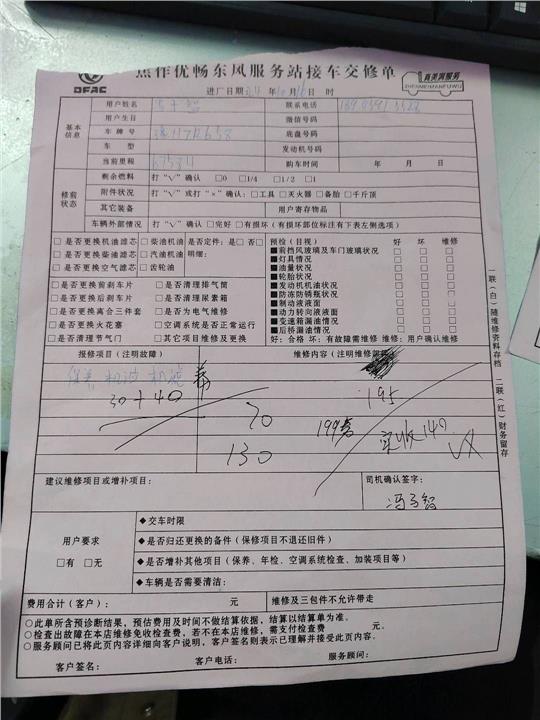 焦作优畅东风服务站接车交修单
DFAC
真美满服务
ZHENMEIMANFUWU
进厂日期 年 10 月 16 日 时
基本信息
用户姓名 联系电话
用户生日 微信号码
车牌号 底盘号码
车型 发动机号码
当前里程 购车时间 年 月 日
修前状态
剩余燃料 打“√”确认 □0 □1/4 □1/2 □1
附件状况 打“√”或打“×”确认：□工具 □灭火器 □备胎 □千斤顶
其它装备 用户寄存物品
车辆外部情况 打“√”确认 □完好 □有损坏（有损坏部位标注有下表左侧选项）
□是否更换机油滤芯 □柴油机油 □是否定件：是□否□
□是否更换柴油滤芯 □汽油机油 明细：
□是否更换空气滤芯 □齿轮油
□是否更换前刹车片 □是否清理排气筒
□是否更换后刹车片 □是否清理尿素箱
□是否更换离合三件套 □是否为电气维修
□是否更换火花塞 □空调系统是否正常运行
□是否清理节气门 □其它项目维修及更换
预检（目视） 好 坏 维修
■前挡风玻璃及车门玻璃状况 □ □ □
■灯具情况 □ □ □
■油量状况 □ □ □
■轮胎状况 □ □ □
■发动机机油状况 □ □ □
■防冻防锈瓶状况 □ □ □
■制动液液面 □ □ □
■动力转向液液面 □ □ □
■变速箱漏油情况 □ □ □
■后桥漏油情况 □ □ □
好：合格 坏：有故障需维修 维修：用户确认维修
报修项目（注明故障） 维修内容（注明维修部位）
保养 机油 机滤
30+40 195
70 实收140
130
建议维修项目或增补项目： 司机确认签字：
冯子智
用户要求
□有 □无
◆交车时限
◆是否归还更换的备件（保修项目不退还旧件）
◆是否增补其他项目（保养、年检、空调系统检查、加装项目等）
◆车辆是否需要清洁：
费用合计（客户）： 元 维修及三包件不允许带走
○此单所含预诊断结果，预估费用及时间不做结算依据，结算以结算单为准。
○检查出故障在本店维修免收检查费，若不在本店维修，需支付检查费 元。
○服务顾问已将此页内容详细向客户说明，客户签名则表示已理解并接受此页内容。
客户签名： 客户电话： 服务顾问：
一联（白）随维修资料存档 二联（红）财务留存